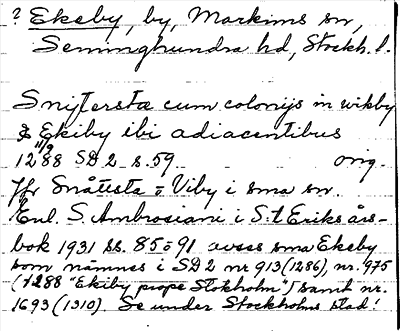 ? Ekeby, by, Markims sn,
Seminghundra hd, Stockh. l.
Snijtersta cum colonijs in wikby
& Ekiby ibi adiacentibus
11/9
1288 SD 2 s. 59. orig.
Jfr Snåttsta o Viby i sma sn.
Enl. S. Ambrosiani i S:t Eriks års-
bok 1931 ss. 85 o 91 avses sma Ekeby
som nämnes i SD 2 nr 913 (1286), nr. 975
(1288 "Ekiby prope Stokholm") samt nr.
1693 (1310). Se under Stockholms stad!